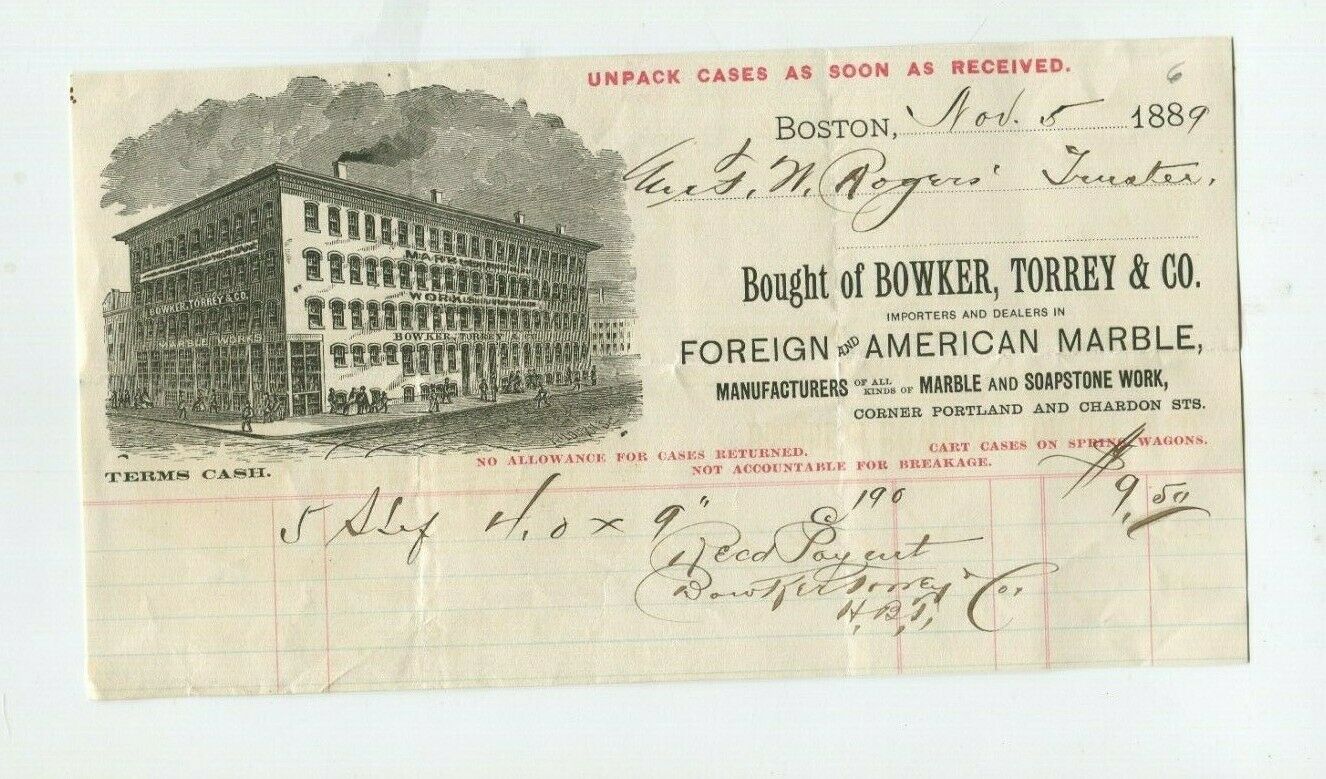 UNPACK CASES AS SOON AS RECEIVED.
6
BOSTON, Nov. 5 1889
W. Rogers' Trustee,
Bought of BOWKER, TORREY & CO.
IMPORTERS AND DEALERS IN
FOREIGN AND AMERICAN MARBLE,
MANUFACTURERS OF ALL KINDS OF MARBLE AND SOAPSTONE WORK,
CORNER PORTLAND AND CHARDON STS.
BOWKER, TORREY & CO.
MARBLE WORKS
MARBLE
WORKS
BOWKER, TORREY
TERMS CASH.
NO ALLOWANCE FOR CASES RETURNED. CART CASES ON SPRING WAGONS.
NOT ACCOUNTABLE FOR BREAKAGE.
5 4.0 x 9" 190 $9.50
Recd Payment
Bowker Torrey & Co.
H.B.T.